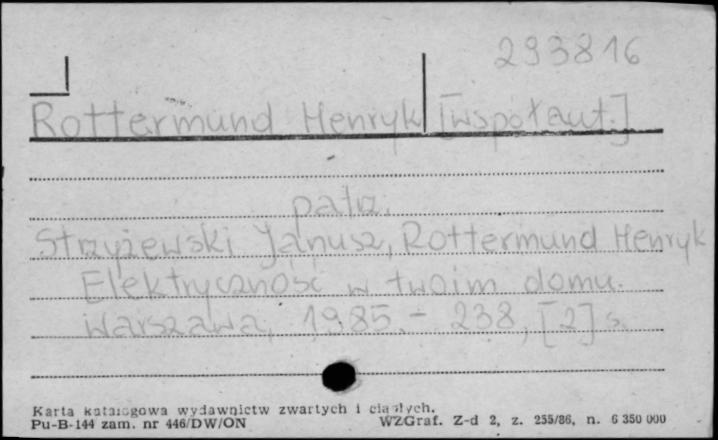 293816
Rottermund Henryk [współaut.]
patrz.
Strzyżewski Janusz, Rottermund Henryk
Elektryczność w twoim domu.
Warszawa, 1985.- 238, [2] s.
Karta katalogowa wydawnictw zwartych i ciągłych.
Pu-B-144 zam. nr 446/DW/ON WZGraf. Z-d 2, z. 255/86, n. 6 350 000